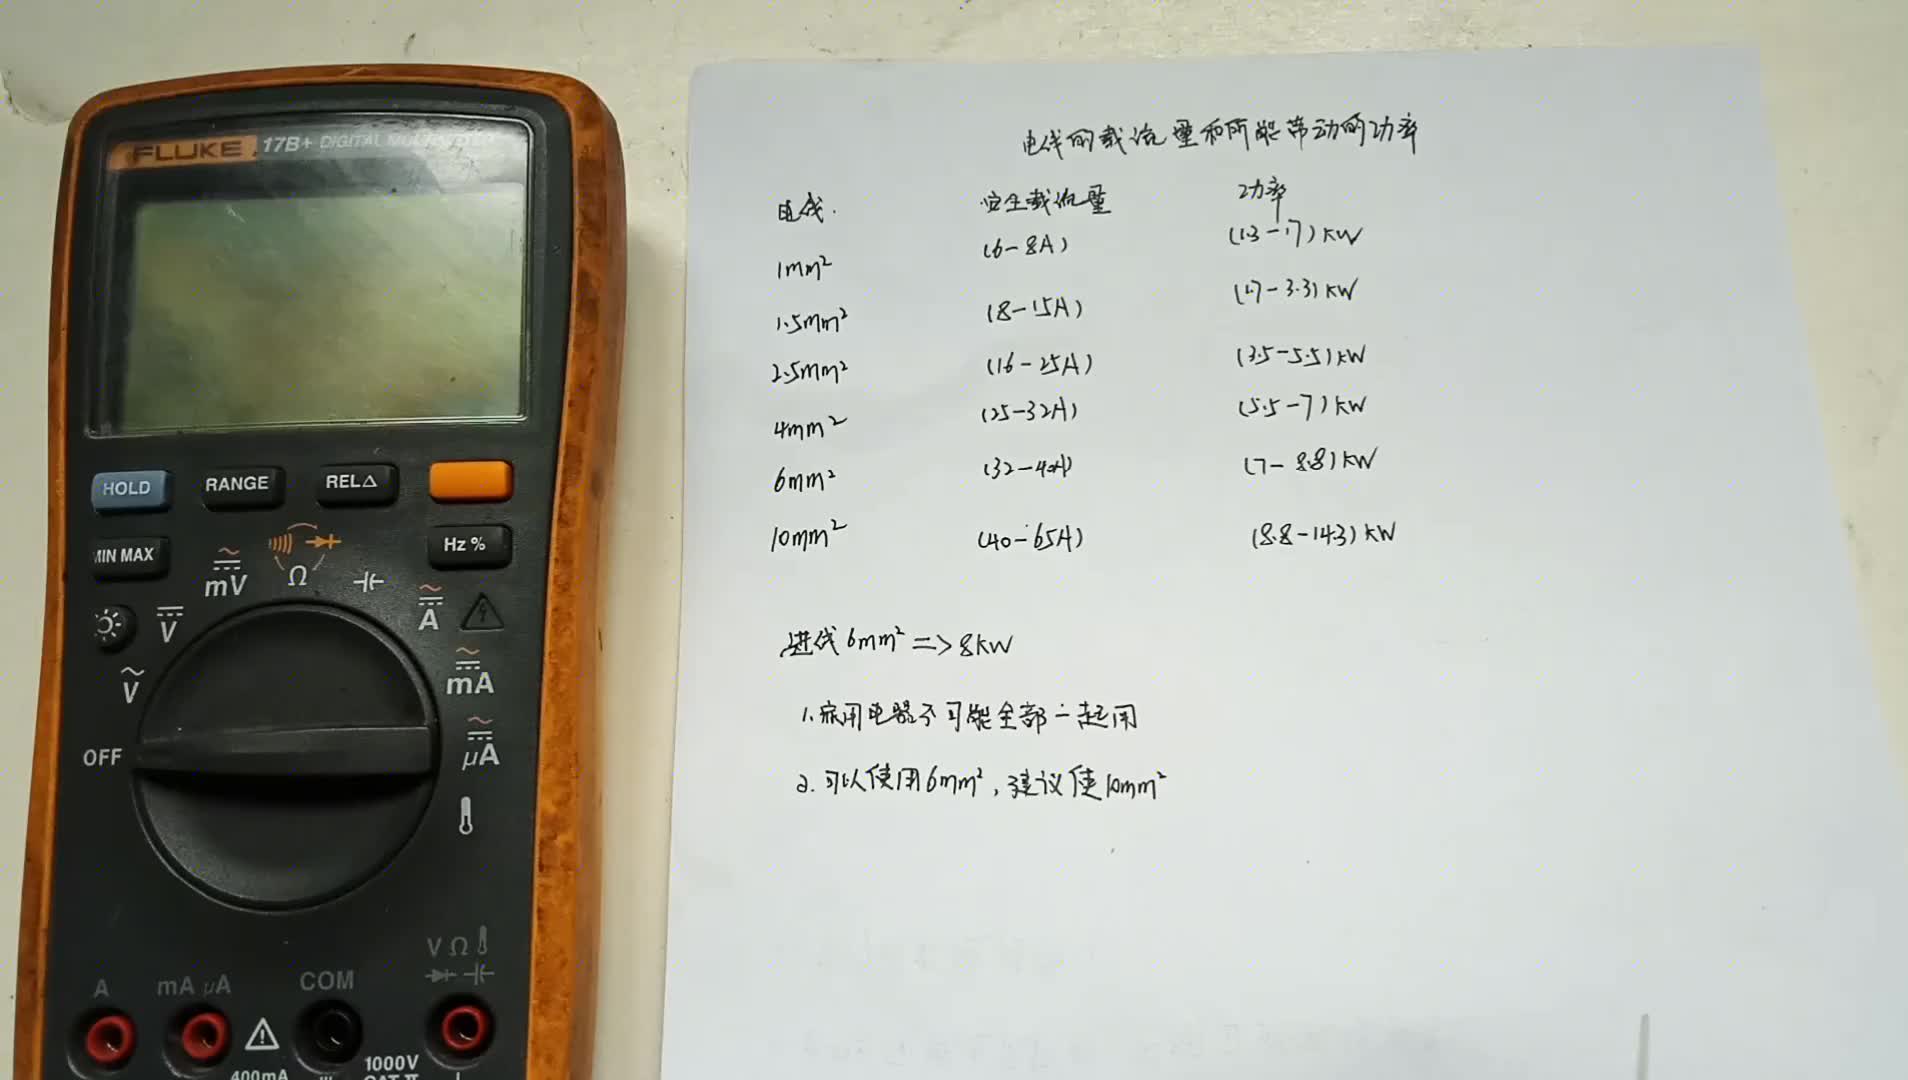 FLUKE 17B+ DIGITAL MULTIMETER
HOLD RANGE REL△
MIN MAX Hz %
mV Ω A
V mA
V
OFF μA
A mA μA COM V Ω
400mA 1000V
CAT II
电线的载流量和所能带动的功率
电线. 安全载流量 功率
1mm² (6-8A) (1.3-1.7)KW
1.5mm² (8-15A) (1.7-3.3)KW
2.5mm² (16-25A) (3.5-5.5)KW
4mm² (25-32A) (5.5-7)KW
6mm² (32-40A) (7-8.8)KW
10mm² (40-65A) (8.8-14.3)KW
进线6mm² => 8KW
1. 家用电器不可能全部一起用
2. 可以使用6mm², 建议使10mm²